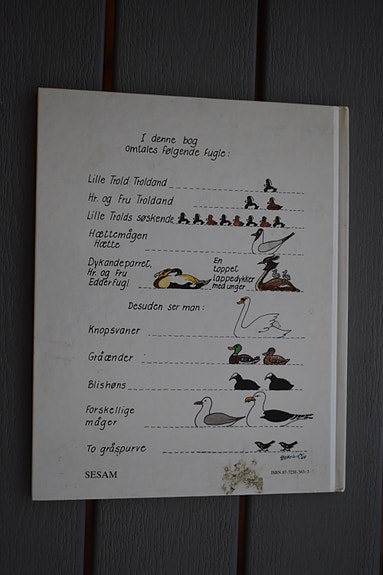 I denne bog
omtales følgende fugle:
Lille Trold Troldand
Hr. og Fru Troldand
Lille Trolds søskende
Hættemågen
Hætte
Dykandeparret,
Hr. og Fru
Edderfugl
En
toppet
lappedykker
med unger
Desuden ser man:
Knopsvaner
Gråænder
Blishøns
Forskellige
måger
To gråspurve
SESAM